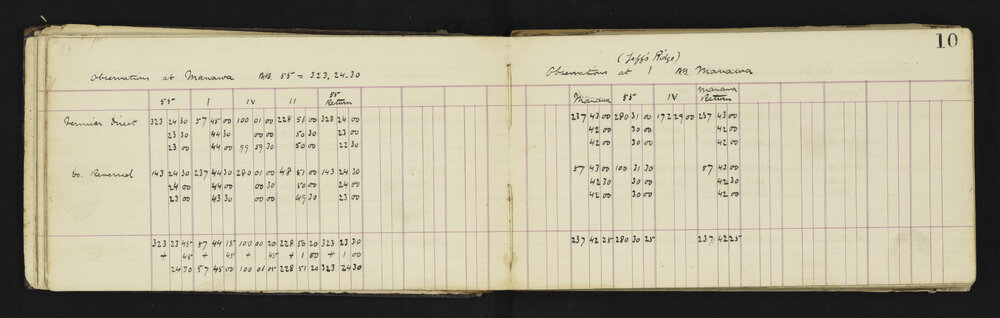 10
Observations at Manawa BM 55 = 323.24.30
55 I IV II 55 Return
Vernier Direct 323 24 30 57 45 00 100 01 00 228 51 00 323 24 00
23 30 44 30 00 00 50 30 23 00
23 00 44 00 99 59 30 50 00 22 30
Do. Reversed 143 24 30 237 44 30 280 01 00 48 51 00 143 24 30
24 00 44 00 00 30 50 00 24 00
23 00 43 30 00 00 49 30 23 00
323 23 45 57 44 15 100 00 20 228 50 20 323 23 30
+ 45 + 45 + 45 + 1 00 + 1 00
24 30 57 45 00 100 01 05 228 51 20 323 24 30
(Jeff's Ridge)
Observations at I BM Manawa
Manawa 55 IV Manawa Return
237 43 00 280 31 00 172 29 00 237 43 00
42 00 30 00 42 00
42 00 30 00 42 00
57 43 00 100 31 30 57 43 00
42 30 30 00 42 30
42 00 30 00 42 00
237 42 25 280 30 25 237 42 25